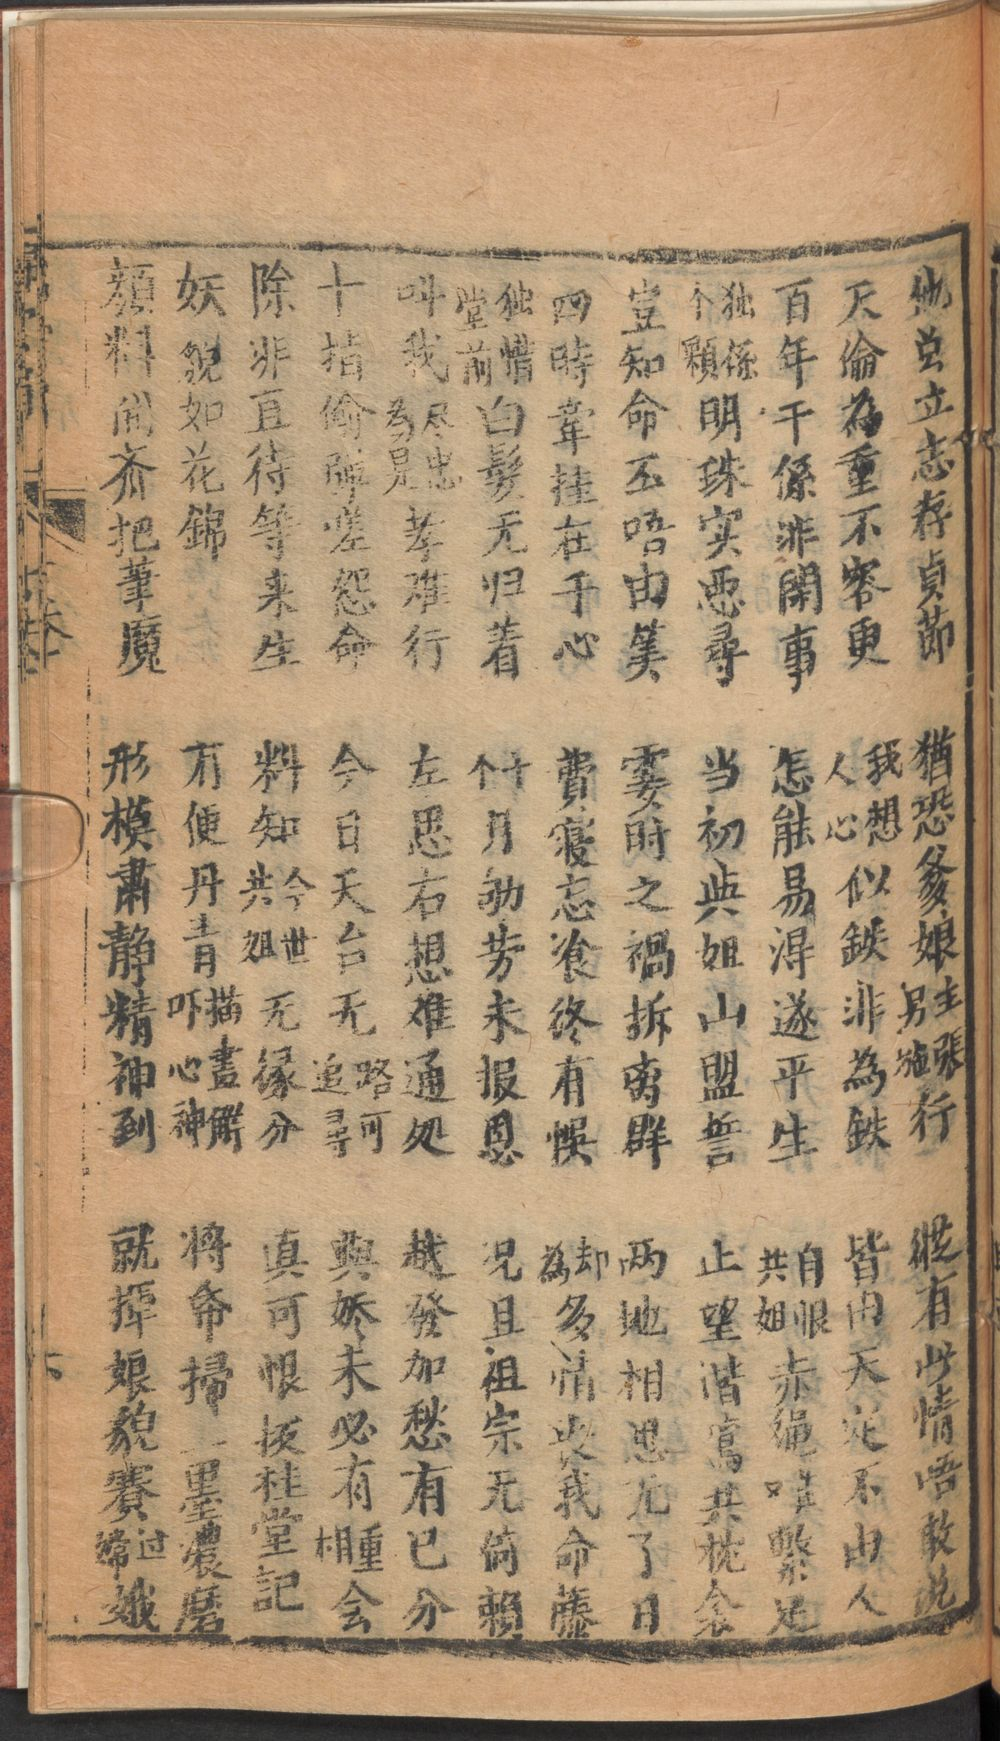 他曾立志存貞節 猶恐爹娘主張另施行 縱有此情唔敢說
天倫為重不容更 我想人心似鉄非為鉄 皆由天定不由人
百年干係非閒事 怎能易淂遂平生 自恨共姐赤绳唯繫足
独係个顆明珠实恶尋 当初與姐山盟誓 止望谐鴛共枕衾
豈知命不唔由美 霎时之禍拆离群 两地相思无了日
四時牽挂在于心 費寝忘飡终有悞 却為多情喪我命藤
独惜堂前白髮无归着 十个月劬劳未报恩 况且祖宗无倚賴
叫我尽忠為兄孝难行 左思右想难通处 越發加愁有已分
十指偷弹嗟怨命 今日天台无路可追尋 與娇未必有重相会
除非直待等来生 料知今世共姐无缘分 真可恨 桂堂記
妖貌如花錦 有便丹青描畫解吓心神 将帋掃 墨濃磨
顔料開齐把筆魔 形模肅静精神到 就揮娘貌賽过嫦娥